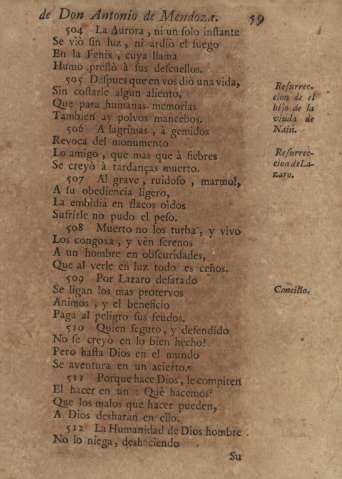 de Don Antonio de Mendoza. 59
504 La Aurora, ni un solo instante
Se viò sin luz, ni ardiò el fuego
En la Fenix, cuya llama
Humo prestò à sus descuellos.
505 Despues que en vos diò una vida,
Sin costarle algun aliento,
Que para humanas memorias
Tambien ay polvos mancebos.
Resurrec-
cion de el
hijo de la
viuda de
Nain.
506 A lagrimas, à gemidos
Revoca del monumento
Lo amigo, que mas que à fiebres
Se creyò à tardanças muerto.
Resurrec-
cion de La-
zaro.
507 Al grave, ruidoso, marmol,
A su obediencia ligero,
La embidia en flacos oidos
Sufrirle no pudo el peso.
508 Muerto no los turba, y vivo
Los congoxa, y vèn serenos
A un hombre en obscuridades,
Que al verle en luz todo es ceños.
509 Por Lazaro desatado
Se ligan los mas protervos
Animos, y el beneficio
Paga al peligro sus feudos.
Concilio.
510 Quien seguro, y defendido
No se creyò en lo bien hecho?
Pero hasta Dios en el mundo
Se aventura en un acierto.
511 Porque hace Dios, le compiten
El hacer en un: Què hacemos?
Que los malos que hacer pueden,
A Dios desharàn en ello.
512 La Humanidad de Dios hombre
No lo niega, deshaciendo
Su